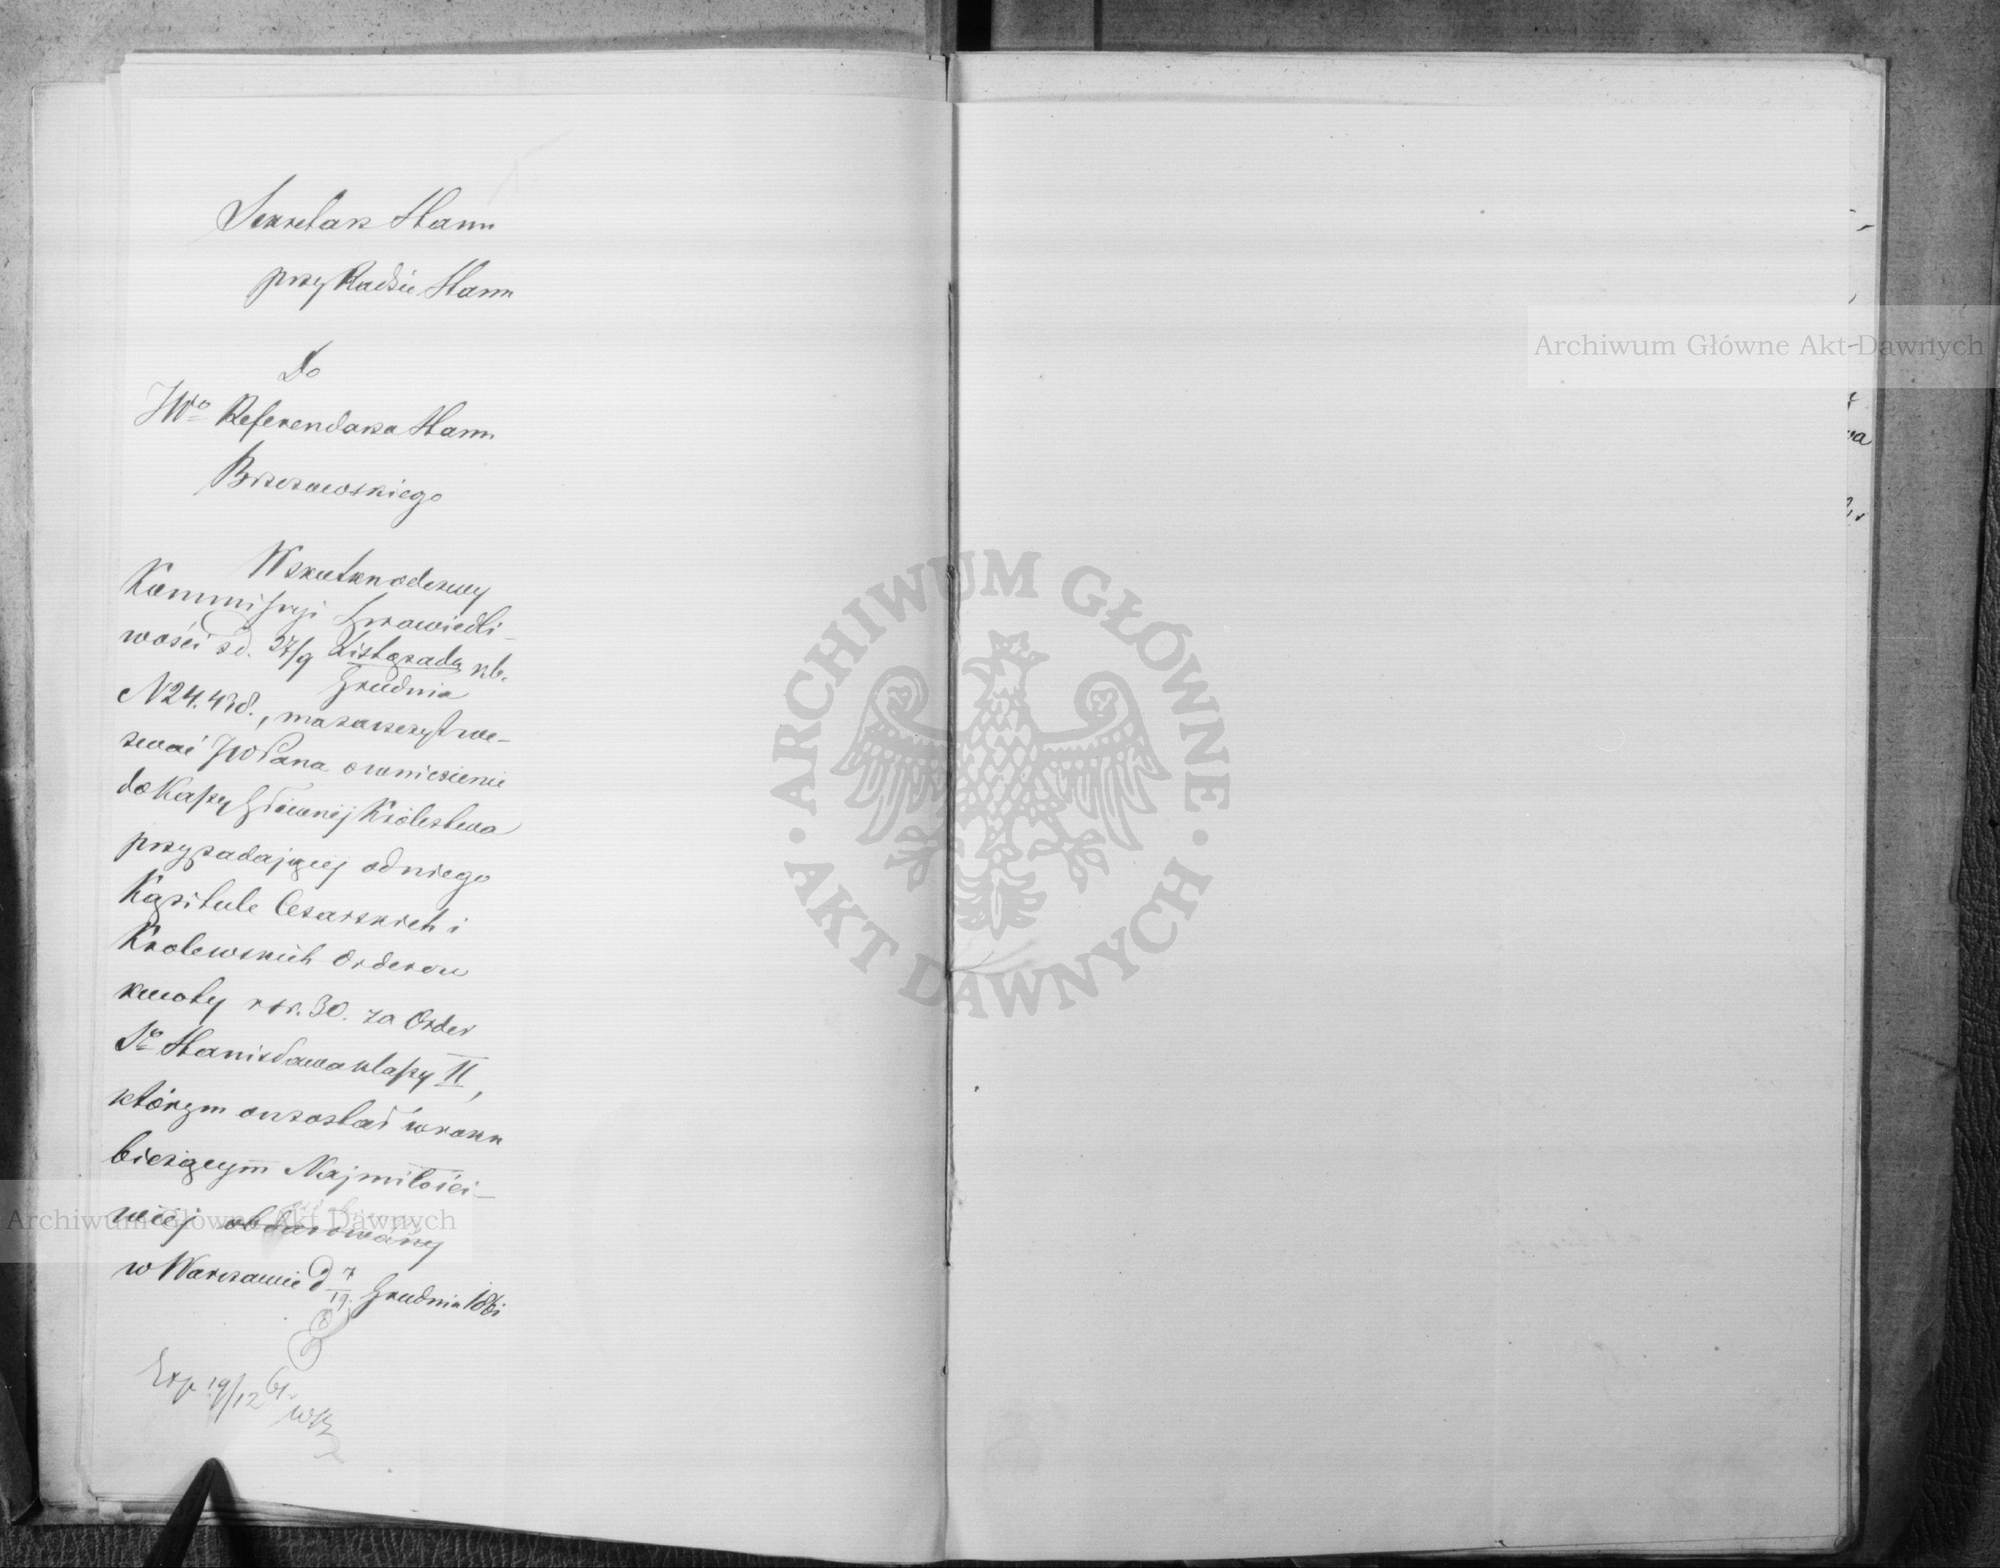 Sekretarz Stanu
przy Radzie Stanu
Do
JWgo Referendarza Stanu
Brzozowskiego
W skutku odezwy
Kommissyi Sprawiedli-
wości z d. 27/9 Listopada rb.
Grudnia
N 24.438., ma zaszczyt we-
zwać JWPana o wniesienie
do Kassy Głównej Królestwa
przypadającej od niego
Kapitule Cesarskich i
Krolewskich Orderow
kwoty rsr. 30. za Order
Sgo Stanisława klassy II,
którym on został w roku
bieżącym Najmiłości-
wiej obdarowany
w Warszawie d 7/19. Grudnia 1861
Exp 19/12 61.
Archiwum Główne Akt Dawnych
Archiwum Główne Akt Dawnych
ARCHIWUM GŁÓWNE AKT DAWNYCH